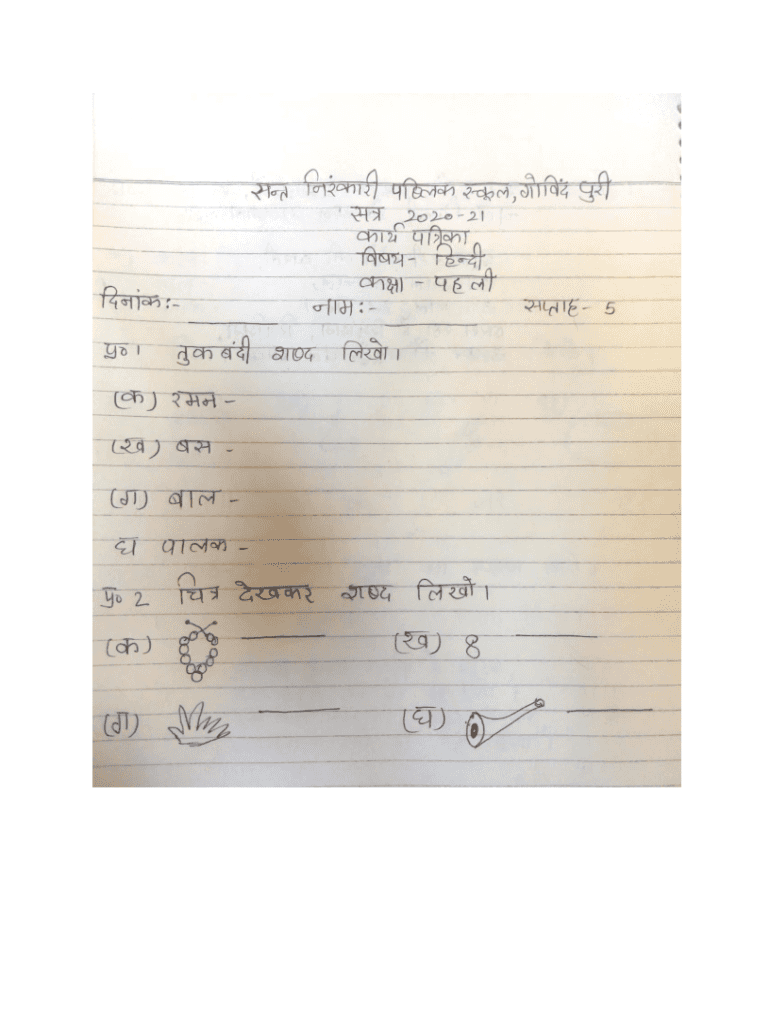 सन्त निरंकारी पब्लिक स्कूल, गोविंद पुरी
सत्र 2020-21
कार्य पत्रिका
विषय - हिन्दी
कक्षा - पहली
दिनांक :- नाम :- सप्ताह - 5
प्र० 1 तुकबंदी शब्द लिखो।
(क) रमन -
(ख) बस -
(ग) बाल -
घ पालक -
प्र० 2 चित्र देखकर शब्द लिखो।
(क) (ख) 8
(ग) (घ)